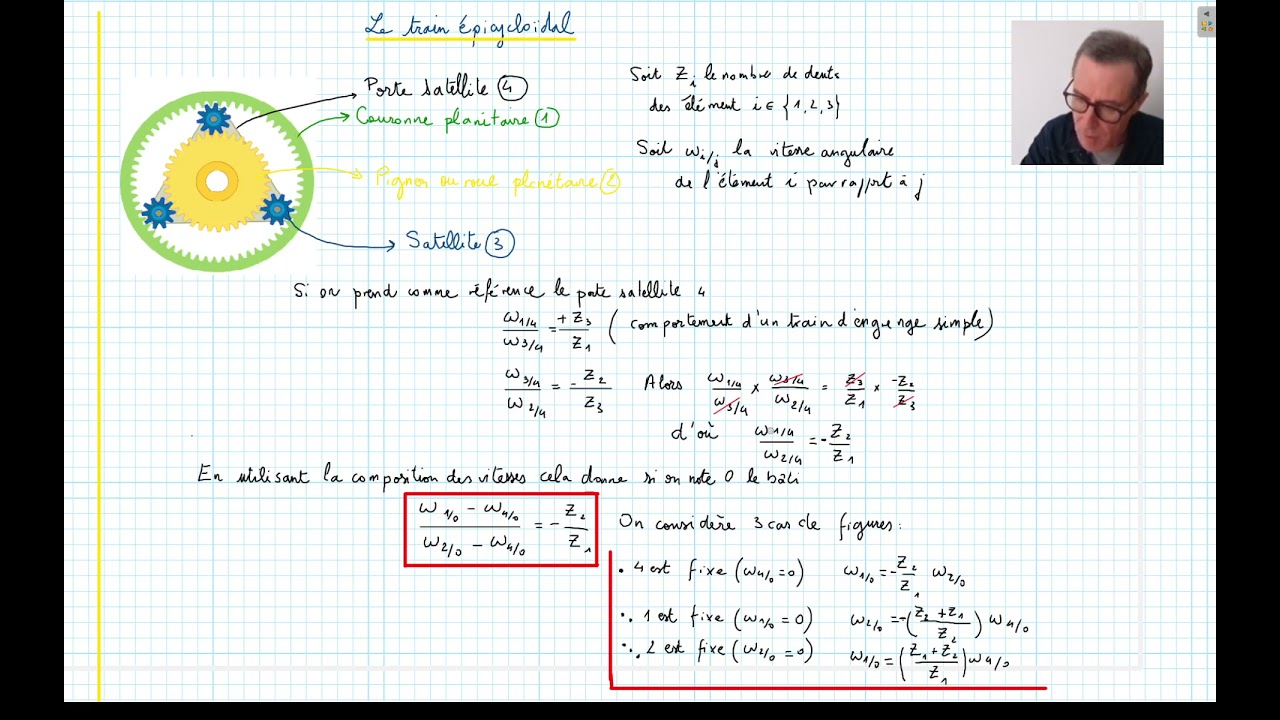 Le train épicycloïdal
Porte satellite 4
Couronne planitaire 1
Pignon ou roue planétaire 2
Satellite 3
Soit Zi le nombre de dents
des élément i ∈ {1,2,3}
Soit ωi/j la vitesse angulaire
de l'élément i par rapport à j
Si on prend comme référence le porte satellite 4
ω1/4 / ω3/4 = +Z3 / Z1 (comportement d'un train d'engrenage simple)
ω3/4 / ω2/4 = - Z2 / Z3 Alors ω1/4 / ω3/4 × ω3/4 / ω2/4 = Z3 / Z1 × -Z2 / Z3
d'où ω1/4 / ω2/4 = - Z2 / Z1
En utilisant la composition des vitesses cela donne si on note 0 le bâti
(ω1/0 - ω4/0) / (ω2/0 - ω4/0) = - Z2 / Z1 On considère 3 cas de figures:
. 4 est fixe (ω4/0 = 0) ω1/0 = - Z2 / Z1 ω2/0
∵ 1 est fixe (ω1/0 = 0) ω2/0 = -((Z2 + Z1) / Z2) ω4/0
∵ 2 est fixe (ω2/0 = 0) ω1/0 = ((Z1 + Z2) / Z1) ω4/0